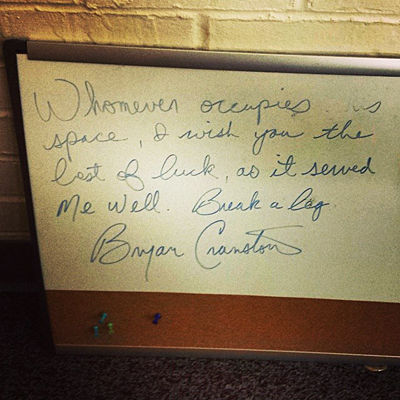 Whomever occupies
space, I wish you the
best of luck, as it served
me well. Break a leg
Bryan Cranston